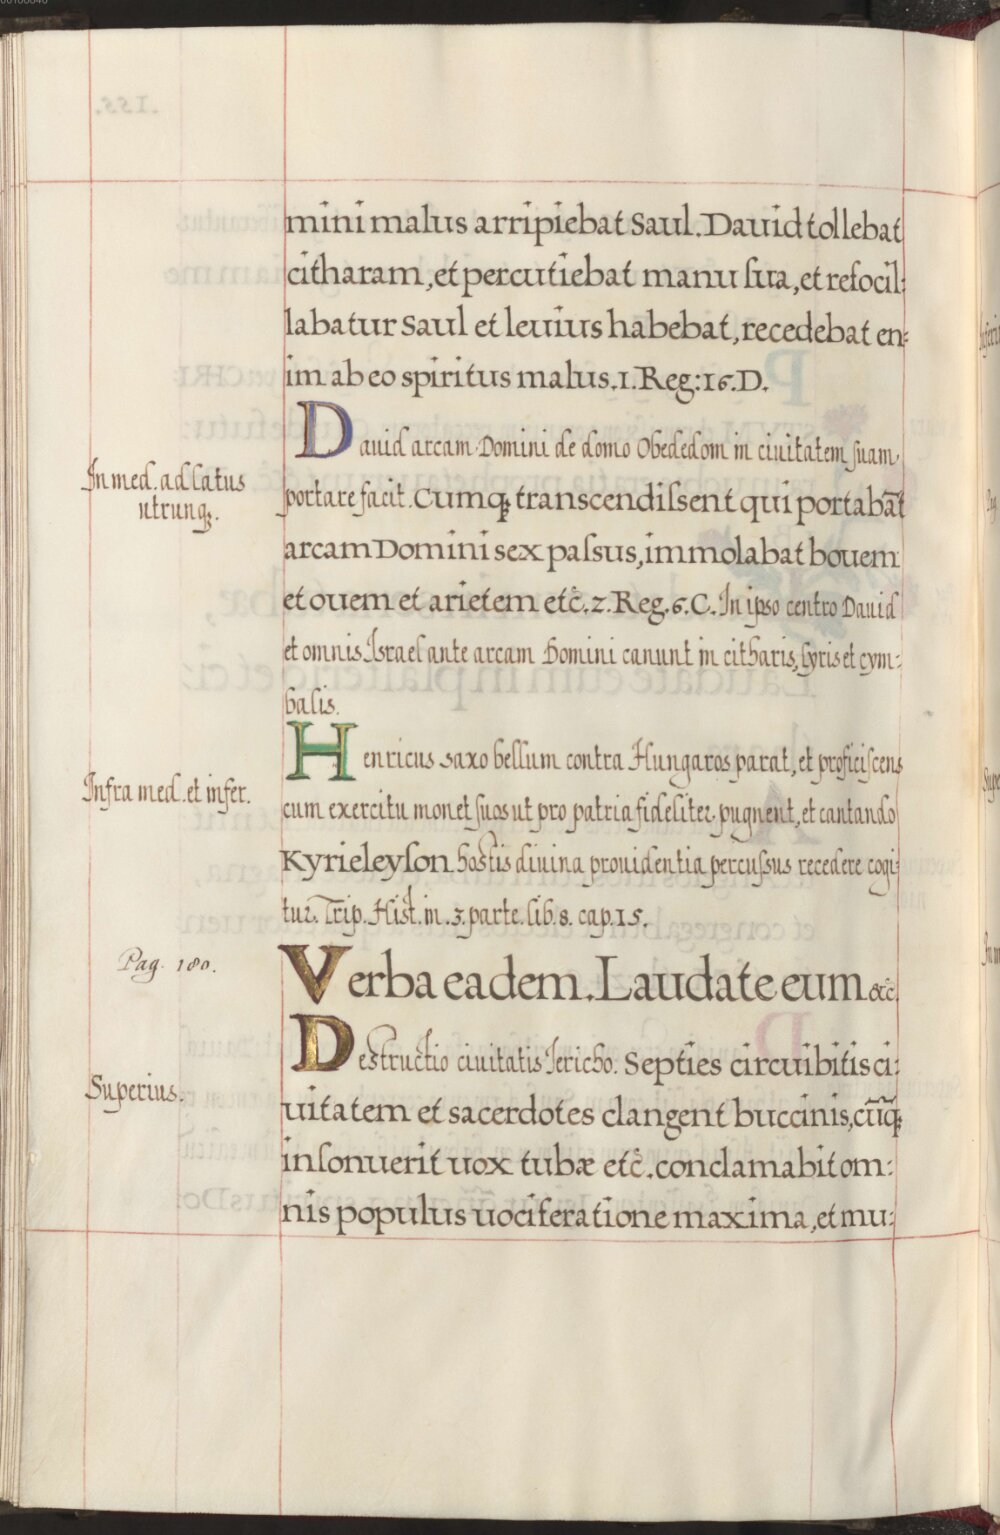 mini malus arripiebat Saul. Dauid tollebat
citharam, et percutiebat manu sua, et refocil:
labatur Saul et leuius habebat, recedebat en:
im ab eo spiritus malus. 1. Reg: 16. D.
Dauid arcam Domini de domo Obededom in ciuitatem suam
In med. ad latus
utrunq.
portare facit. Cumq, transcendissent qui portabāt
arcam Domini sex passus, immolabat bouem
et ouem et arietem etc. 2. Reg. 6. C. In ipso centro Dauid
et omnis Israel ante arcam Domini canunt in citharis, lyris et cym:
balis.
Henricus Saxo bellum contra Hungaros parat, et proficiscens
Infra med. et infer.
cum exercitu monet suos ut pro patria fideliter pugnent, et cantando
Kyrieleyson hostis diuina prouidentia percussus recedere cogi:
tur. Trip. Hist. in. 3. parte. lib. 8. cap. 15.
Pag. 180.
Verba eadem. Laudate eum &c.
Destructio ciuitatis Jericho. Septies circuibitis ci:
Superius.
uitatem et sacerdotes clangent buccinis, cūq,
insonuerit uox tubæ etc. conclamabit om:
nis populus uociferatione maxima, et mu: